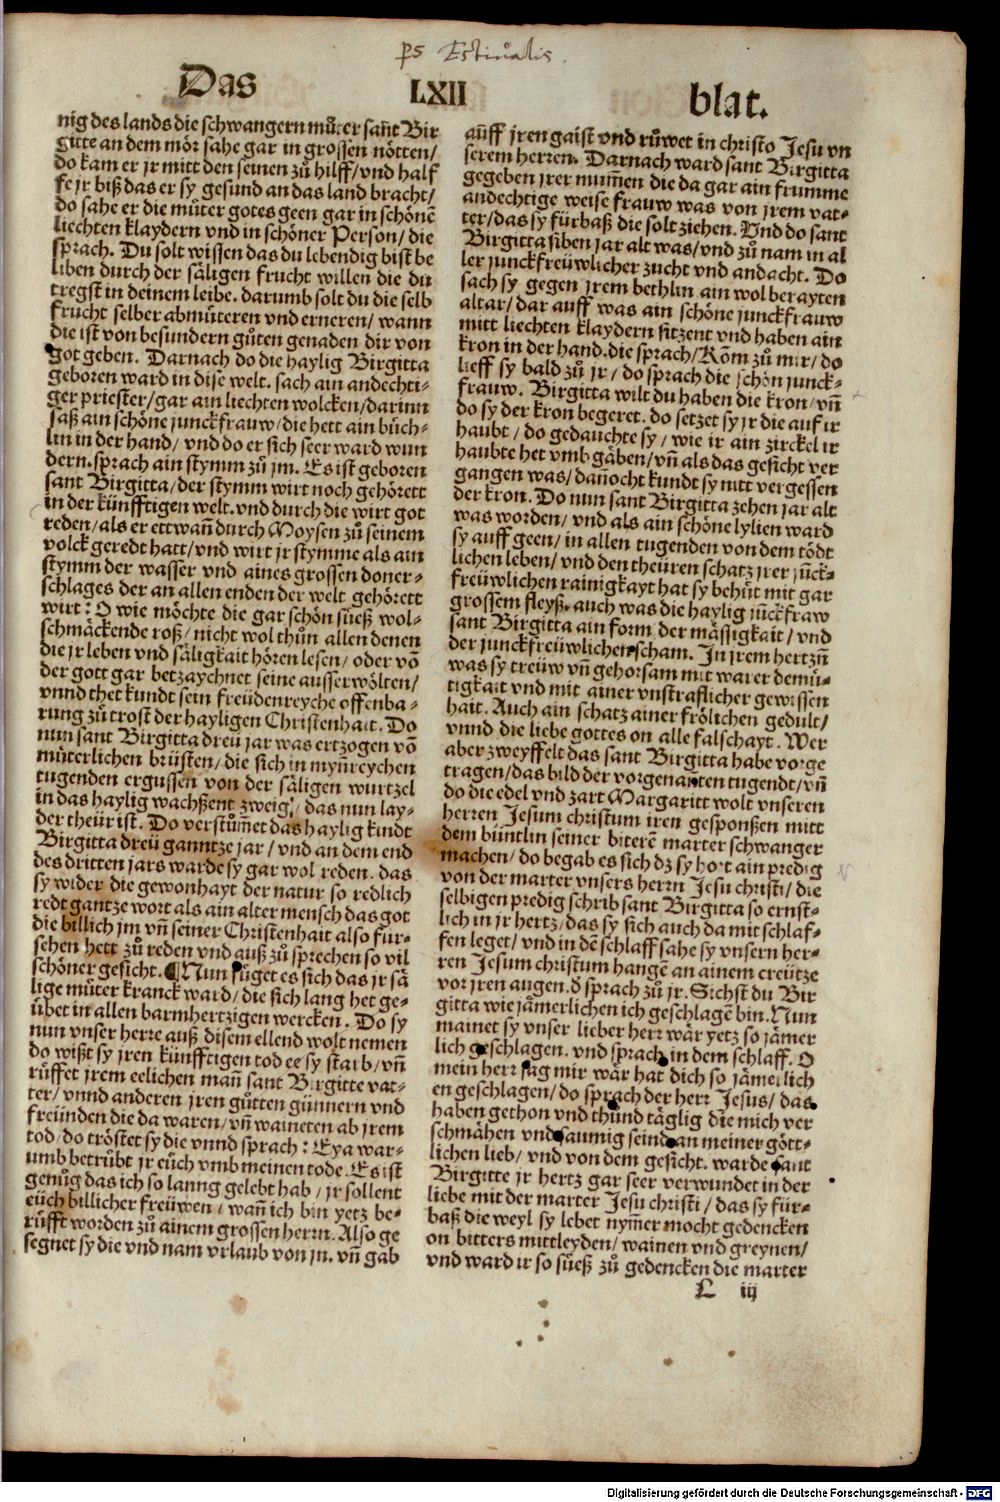 ps Estiualis.
Das LXII blat.
nig des lands die schwangern můter sañt Bir
gitte an dem mör sahe gar in grossen nötten/
do kam er jr mitt den seinen zů hilff/vnd half
fe jr biß das er sy gesund an das land bracht/
do sahe er die můter gotes geen gar in schönē
liechten klaydern vnd in schöner Person/ die
sprach. Du solt wissen das du lebendig bist be
liben durch der säligen frucht willen die du
tregst in deinem leibe. darumb solt du die selb
frucht selber abmůteren vnd erneren/ wann
die ist von besundern gůten genaden dir von
got geben. Darnach do die haylig Birgitta
geboren ward in dise welt. sach ain andechti-
ger priester/gar ain liechten wolcken/darinn
saß ain schöne junckfrauw/die hett ain büch-
lin in der hand/ vnd do er sich seer ward wun
dern.sprach ain stymm zů jm. Es ist geboren
sant Birgitta/der stymm wirt noch gehörett
in der künfftigen welt.vnd durch die wirt got
reden/als er ettwañ durch Moysen zů seinem
volck geredt hatt/vnd wirt jr stymme als ain
stymm der wasser vnd aines grossen doner-
schlages der an allen enden der welt gehörett
wirt: O wie möchte die gar schön süeß wol-
schmäckende roß/ nicht wol thůn allen denen
die jr leben vnd säligkait hören lesen/ oder võ
der gott gar betzaychnet seine ausserwölten/
vnnd thet kundt sein freüdenreyche offenba-
rung zů trost der hayligen Christenhait. Do
nun sant Birgitta dreü jar was ertzogen võ
můterlichen brüsten/ die sich in myñreychen
tugenden ergussen von der säligen wurtzel
in das haylig wachßent zweig/ das nun lay-
der theür ist. Do verstůmet das haylig kindt
Birgitta dreü ganntze jar/ vnd an dem end
des dritten jars warde sy gar wol reden. das
sy wider die gewonhayt der natur so redlich
redt gantze wort als ain alter mensch das got
die billich jm vñ seiner Christenhait also für-
sehen hett zů reden vnd auß zů sprechen so vil
schöner gesicht. ¶Nun fůget es sich das jr sä
lige můter kranck ward/ die sich lang het ge-
übet in allen barmhertzigen wercken. Do sy
nun vnser herre auß disem ellend wolt nemen
do wißt sy jren künfftigen tod ee sy starb/vñ
růffet jrem eelichen mañ sant Birgitte vat-
ter/ vnnd anderen jren gůtten günnern vnd
freünden die da waren/ vñ waineten ab jrem
tod/do tröstet sy die vnnd sprach: Eya war-
umb betrůbt jr eüch vmb meinen tode. Es ist
genůg das ich so lanng gelebt hab/ jr sollent
eüch billicher freüwen/ wañ ich bin yetz be-
růfft worden zů ainem grossen herrn. Also ge
segnet sy die vnd nam vrlaub von jn. vñ gab
aůff jren gaist vnd růwet in christo Jesu vn
serem herren. Darnach ward sant Birgitta
gegeben jrer můmen die da gar ain frumme
andechtige weise frauw was von jrem vat-
ter/das sy fürbaß die solt ziehen. Vnd do sant
Birgitta siben jar alt was/vnd zů nam in al
ler junckfreüwlicher zucht vnd andacht. Do
sach sy gegen jrem bethlin ain wol berayten
altar/ dar auff was ain schöne junckfrauw
mitt liechten klaydern sitzent vnd haben ain
kron in der hand.die sprach/Kõm zů mir/ do
lieff sy bald zů jr/ do sprach die schön junck-
frauw. Birgitta wilt du haben die kron/vñ
do sy der kron begeret. do setzet sy jr die auf ir
haubt/ do gedauchte sy/ wie ir ain zirckel ir
haubte het vmb gäben/vñ als das gesicht ver
gangen was/ dañocht kundt sy nitt vergessen
der kron. Do nun sant Birgitta zehen jar alt
was worden/ vnd als ain schöne lylien ward
sy auff geen/ in allen tugenden von dem tödt
lichen leben/ vnd den theüren schatz jrer jūck-
freüwlichen rainigkayt hat sy behüt mit gar
grossem fleyß. auch was die haylig jūckfraw
sant Birgitta ain form der mässigkait/ vnd
der junckfreüwlichen scham. In jrem hertzñ
was sy treüw vñ gehorsam mit warer demü-
tigkait vnd mit ainer vnstraflicher gewissen
hait. Auch ain schatz ainer frölichen gedult/
vnnd die liebe gottes on alle falschayt. Wer
aber zweyffelt das sant Birgitta habe vorge
tragen/das bild der vorgenañten tugendt/vñ
do die edel vnd zart Margaritt wolt vnseren
herren Jesum christum iren gesponßen mitt
dem büntlin seiner biterē marter schwanger
machen/ do begab es sich dz sy hort ain predig
von der marter vnsers herrn Jesu christi/ die
selbigen predig schrib sant Birgitta so ernst-
lich in jr hertz/das sy sich auch da mit schlaf-
fen leget/ vnd in dē schlaff sahe sy vnsern her-
ren Jesum christum hangē an ainem creütze
vor jren augen.d sprach zů jr. Sichst du Bir
gitta wie jämerlichen ich geschlagē bin.Nun
mainet sy vnser lieber herr wär yetz so jämer
lich geschlagen. vnd sprach in dem schlaff. O
mein herr sag mir wär hat dich so jämerlich
en geschlagen/do sprach der herr Jesus/ das
haben gethon vnd thůnd täglig die mich ver
schmähen vnd saumig seind an meiner gött-
lichen lieb/ vnd von dem gesicht. warde sant
Birgitte jr hertz gar seer verwundet in der
liebe mit der marter Jesu christi/ das sy für-
baß die weyl sy lebet nym̃er mocht gedencken
on bitters mittleyden/ wainen vnd greynen/
vnd ward ir so süeß zů gedencken die marter
L iij
Digitalisierung gefördert durch die Deutsche Forschungsgemeinschaft - DFG